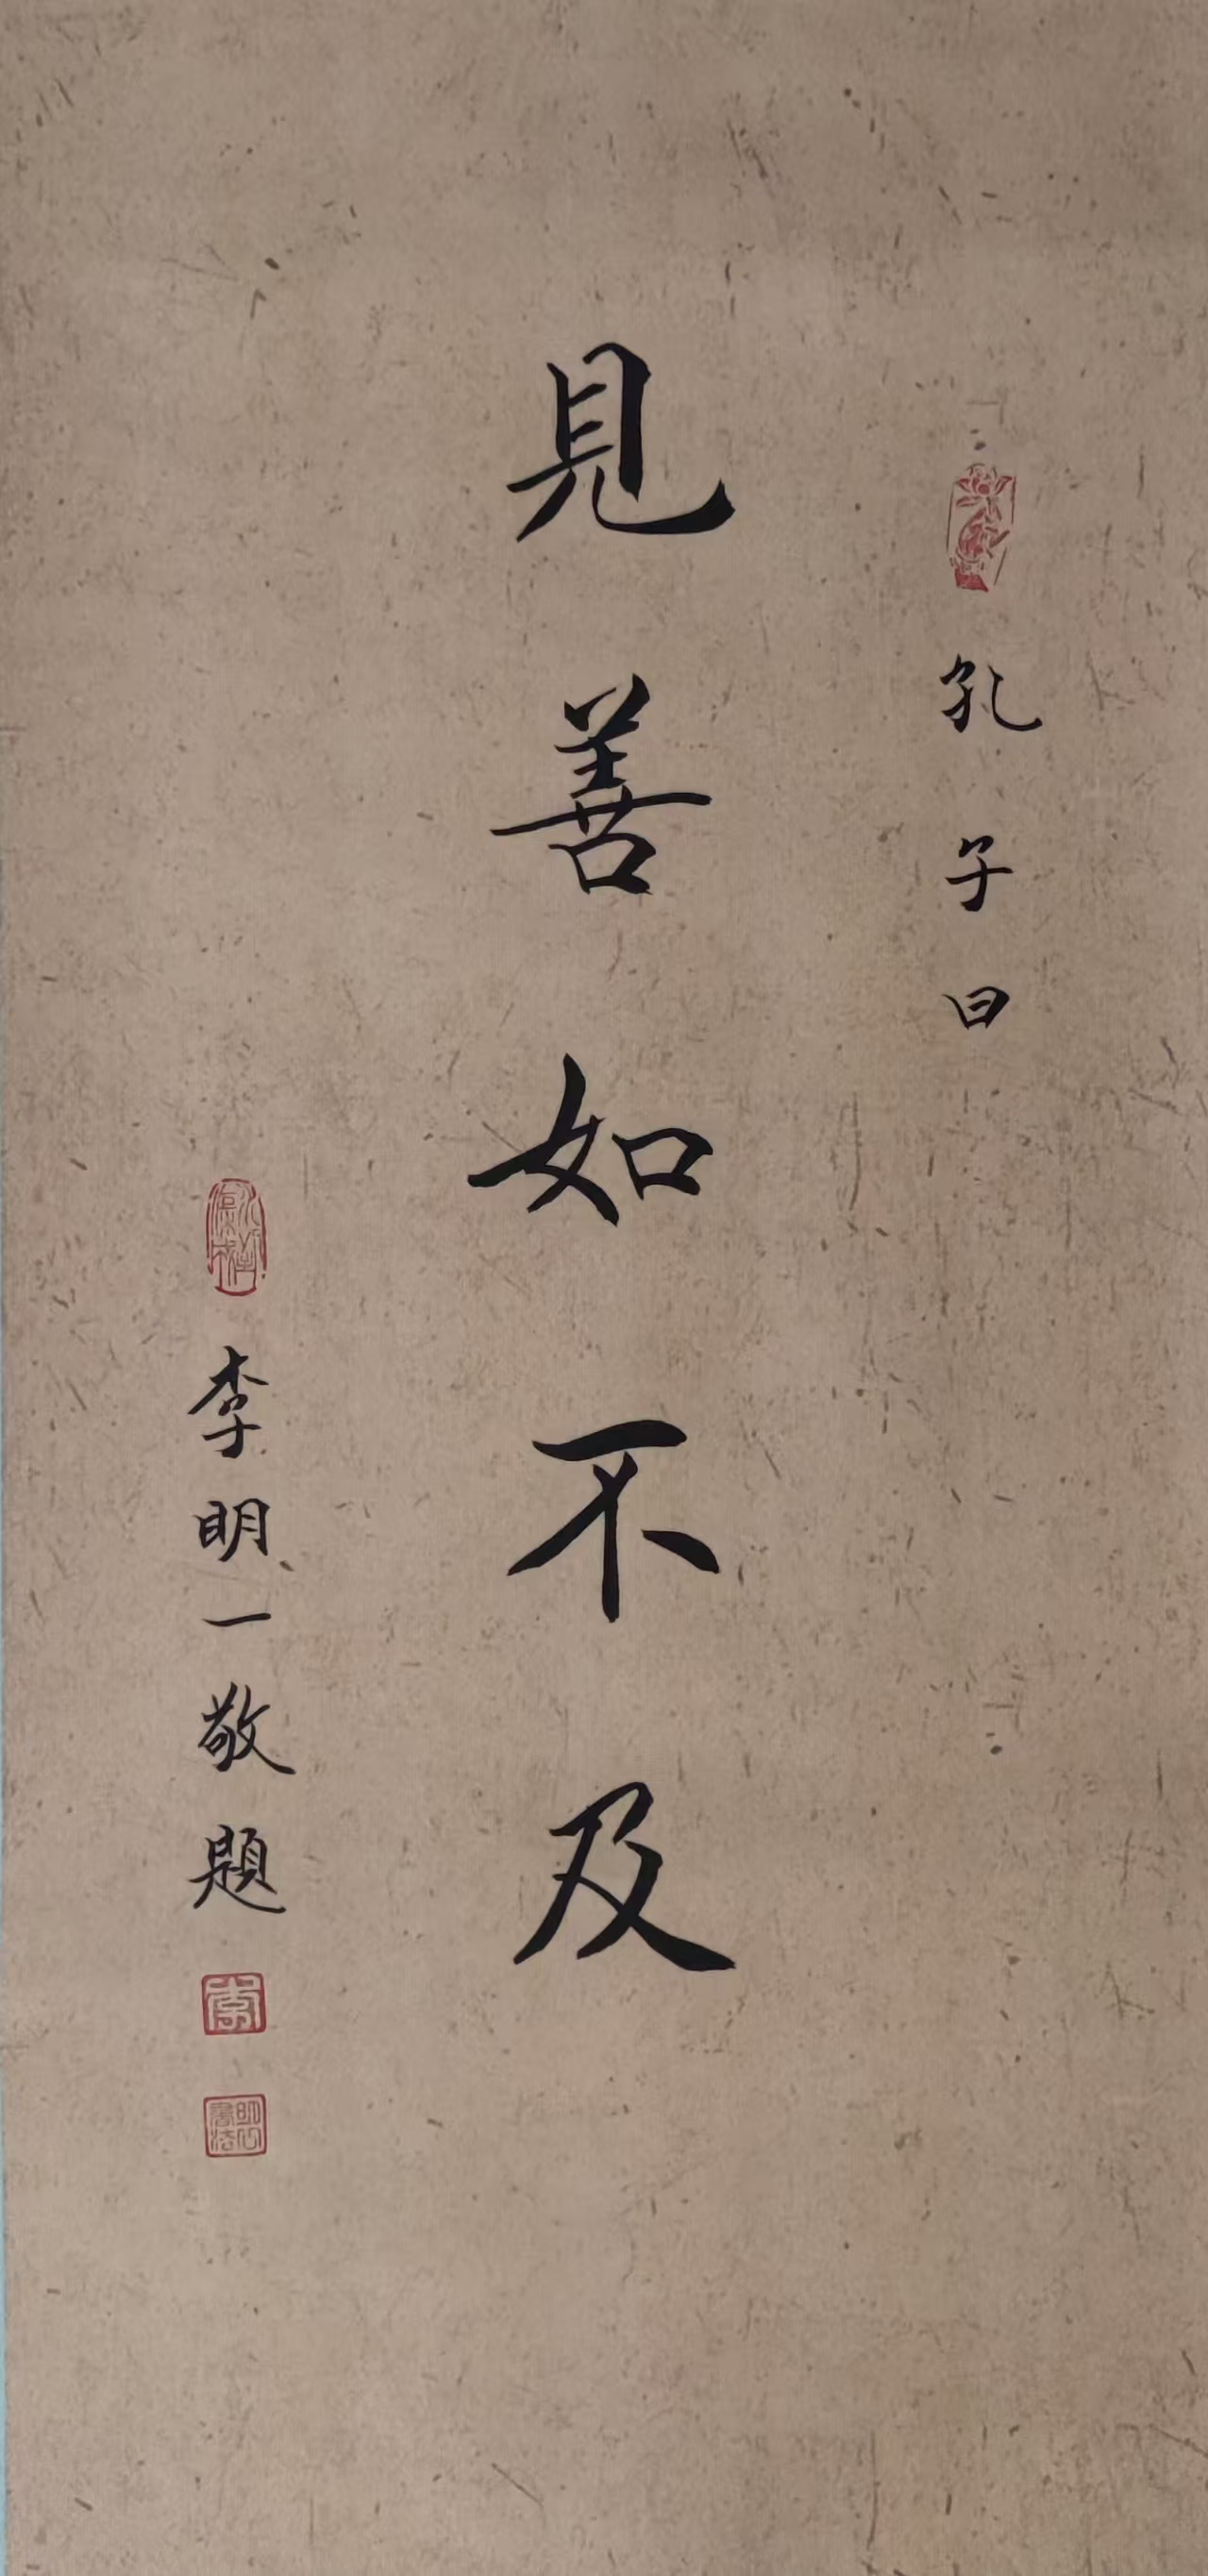 孔子曰
見善如不及
李明一敬題